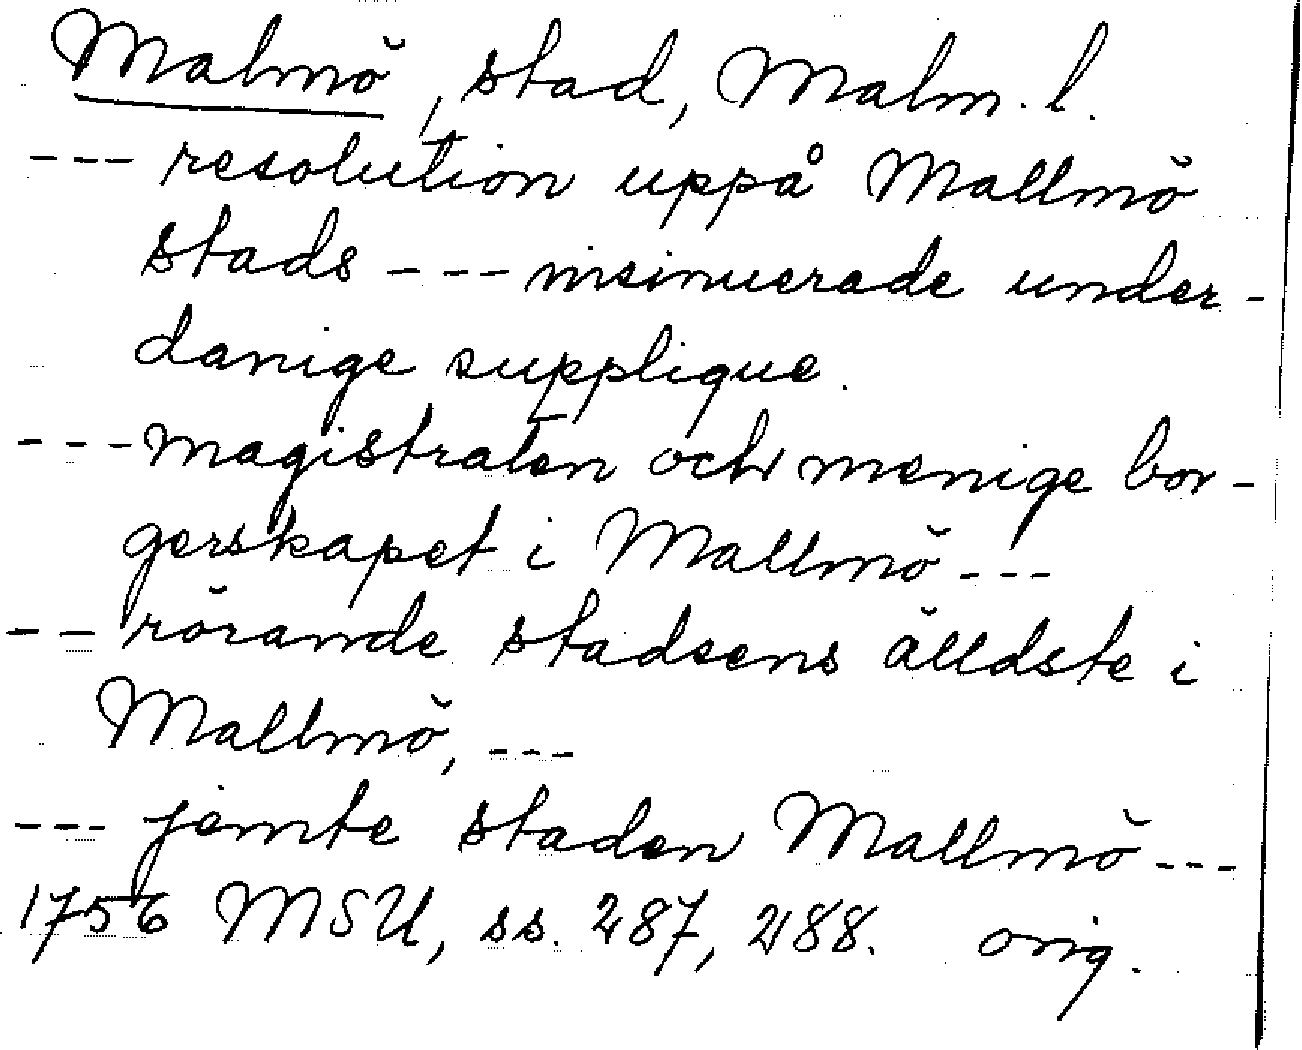 Malmö, stad, Malm. l.
--- resolution uppå Mallmö
stads --- insinuerade under-
danige supplique.
--- magistraten och menige bor-
gerskapet i Mallmö ---
-- rörande stadsens älldste i
Mallmö, ---
--- jemte staden Mallmö ---
1756 MSU, ss. 287, 288. orig.